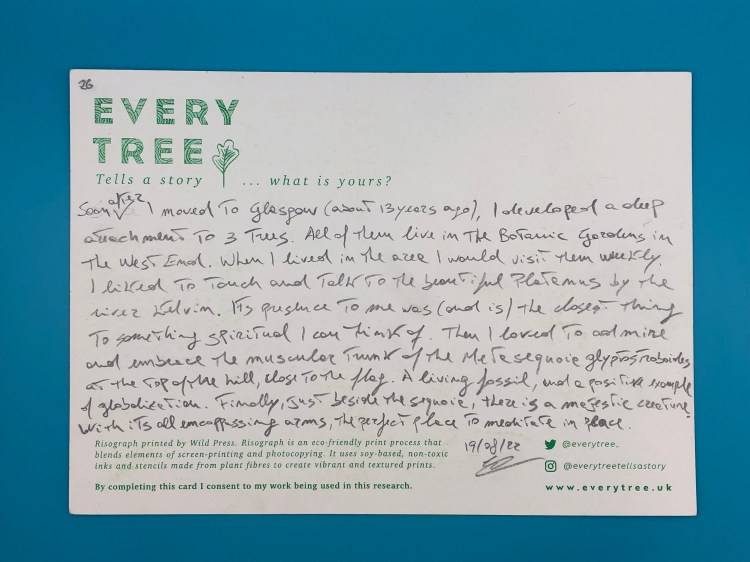 26
EVERY
TREE
Tells a story ... what is yours?
Soon after I moved to Glasgow (about 13 years ago), I developed a deep
attachment to 3 Trees. All of them live in the Botanic Gardens in
the West End. When I lived in the area I would visit them weekly.
I liked to touch and talk to the beautiful Platanus by the
river Kelvin. Its presence to me was (and is) the closest thing
to something spiritual I can think of. Then I loved to admire
and embrace the muscular trunk of the Metasequoia glyptostroboides
at the top of the hill, close to the flag. A living fossil, and a positive example
of globalization. Finally, just beside the sequoia, there is a majestic creature
with its all encompassing arms, the perfect place to meditate in peace.
Risograph printed by Wild Press. Risograph is an eco-friendly print process that
blends elements of screen-printing and photocopying. It uses soy-based, non-toxic
inks and stencils made from plant fibres to create vibrant and textured prints.
19/08/22
@everytree_
@everytreetellsastory
By completing this card I consent to my work being used in this research.
www.everytree.uk